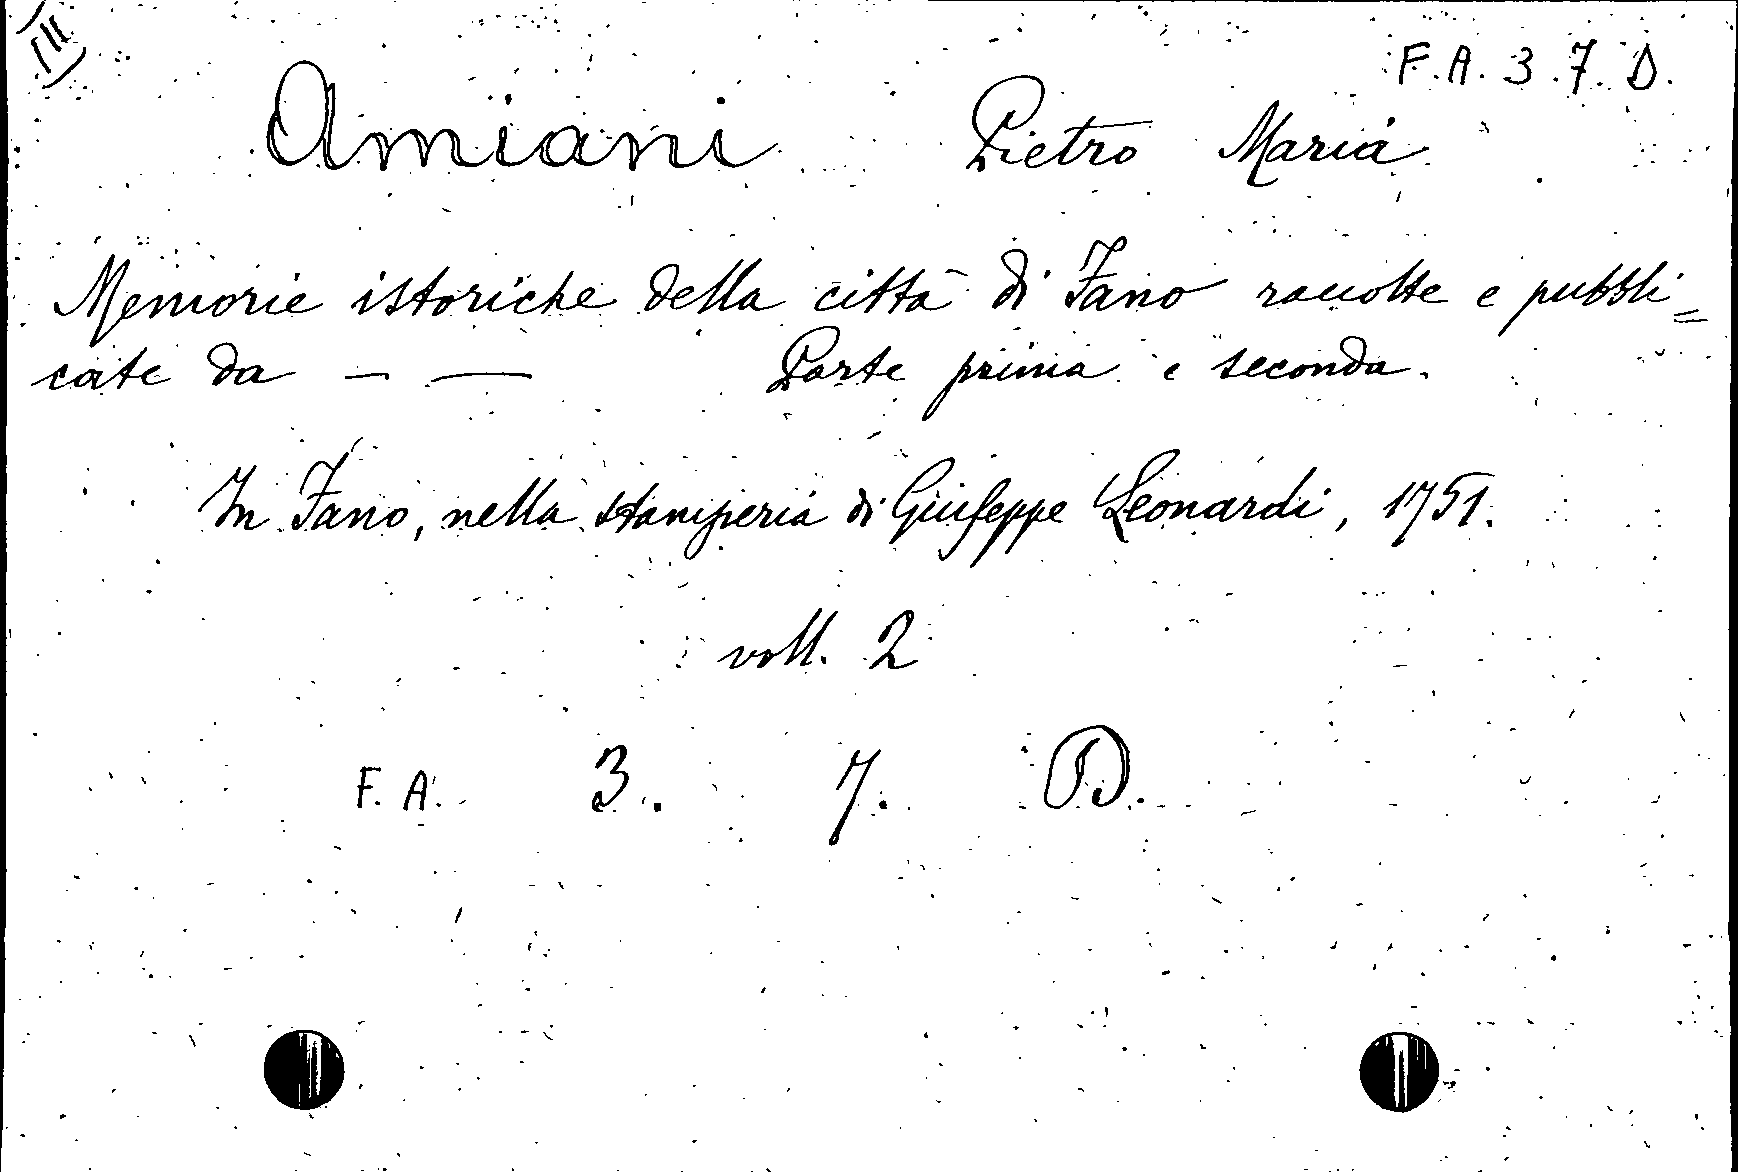 F. A. 3. 7. D.
Amiani Pietro Maria
Memorie istoriche della città di Fano raccolte e pubbli=
cate da — — Parte prima e seconda.
In Fano, nella stamperia di Giuseppe Leonardi, 1751.
voll. 2
F. A. 3. 7. D.